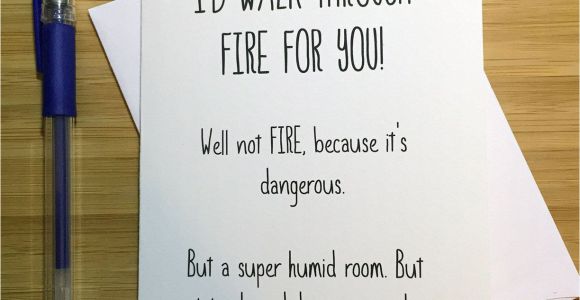 I'D WALK THROUGH
FIRE FOR YOU!
Well not FIRE, because it's
dangerous.
But a super humid room. But